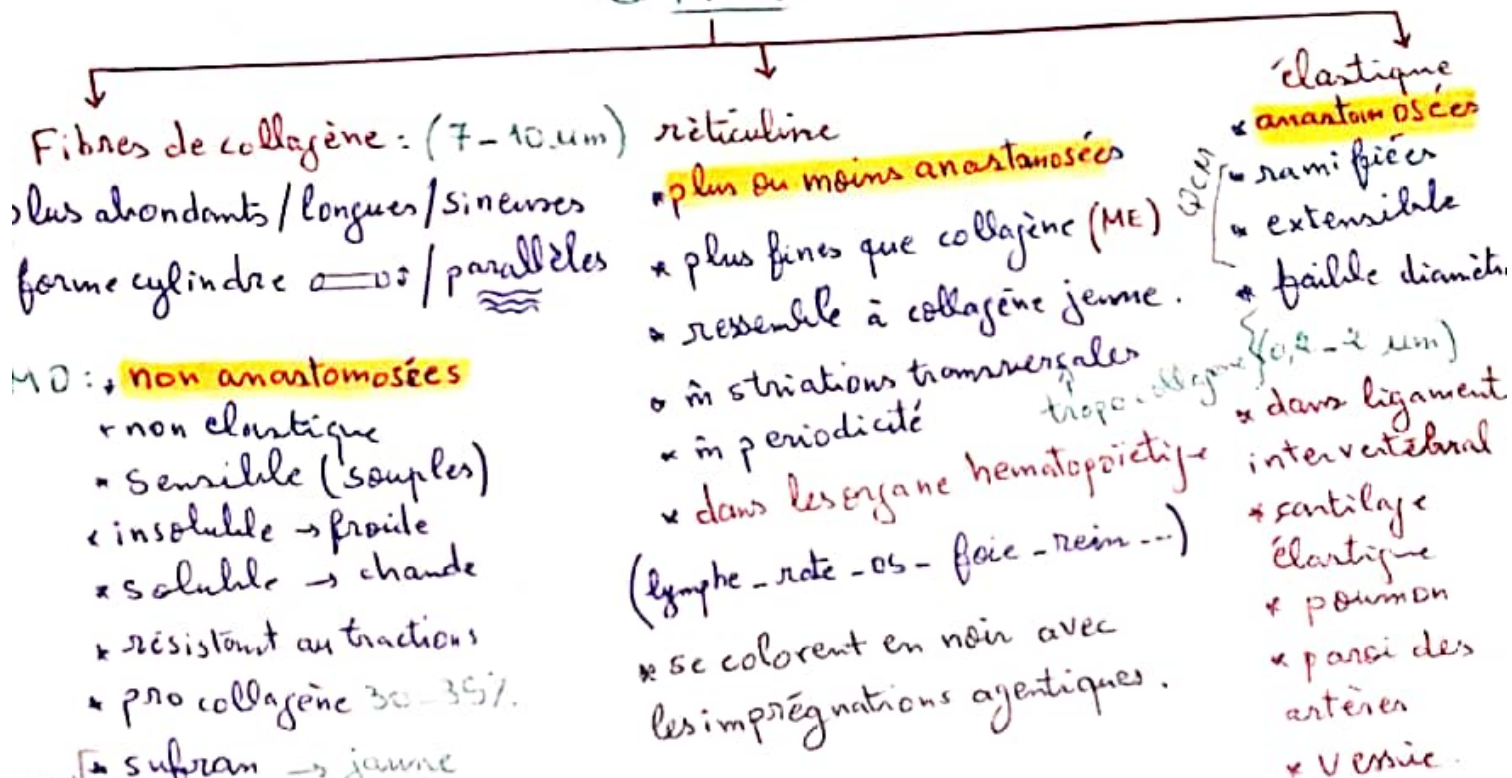 Fibres de collagène : (7-10.um)
plus abondants / longues / sineuses
forme cylindre / parallèles
MO : * non anastomosées
* non elastique
* Sensible (souples)
* insoluble → froide
* soluble → chaude
* résistant au tractions
* pro collagène 30-35%.
* safran → jaune
réticuline
* plus ou moins anastamosées
* plus fines que collagène (ME)
* ressemble à collagène jeune.
* m̂ striations transversales
* m̂ periodicité
tropocollagene
* dans les organe hematopoïétique
(lymphe_rate_os_foie_rein...)
* se colorent en noir avec
les imprégnations agentiques.
élastique
* anastomosées
QCM
* ramifiées
* extensible
* faible diamètr
(0,2-2 um)
* dans ligament
intervertébral
* cartilage
élastique
* poumon
* paroi des
artères
* Vessie.